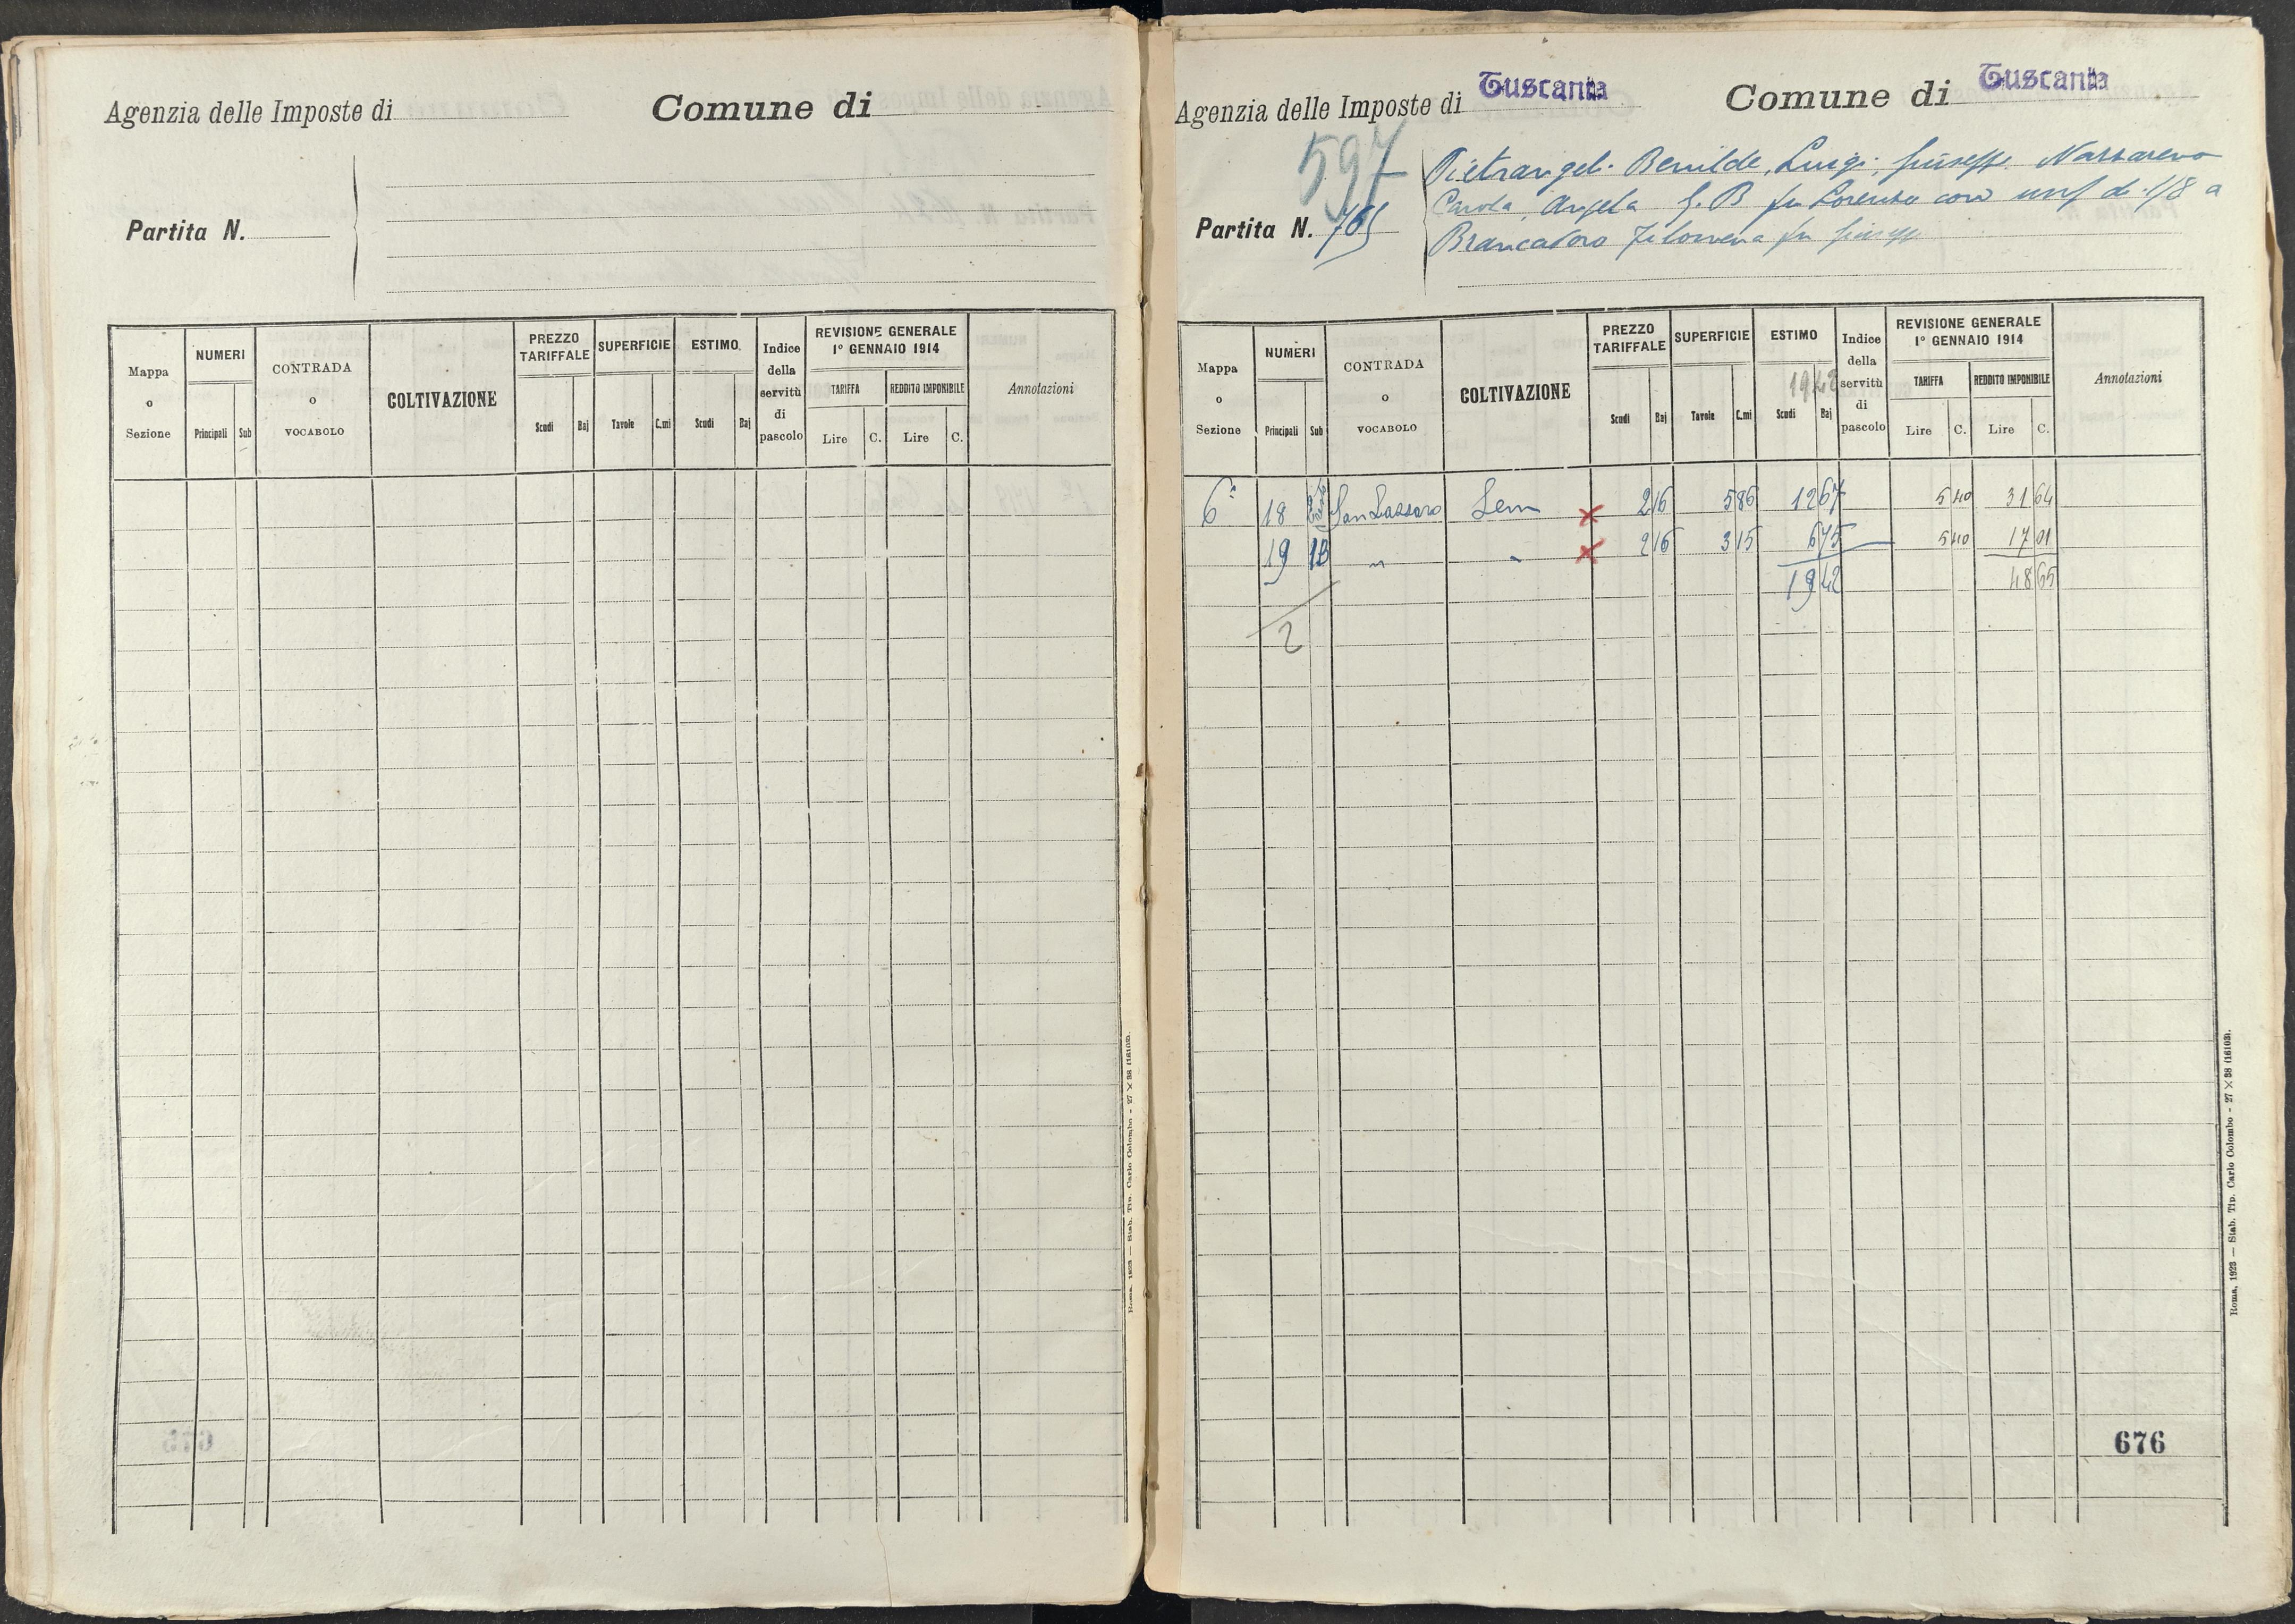 Agenzia delle Imposte di
Comune di
Partita N.
Mappa o Sezione
NUMERI
Principali
Sub
CONTRADA o VOCABOLO
COLTIVAZIONE
PREZZO TARIFFALE
Scudi
Baj
SUPERFICIE
Tavole
C.mi
ESTIMO
Scudi
Baj
Indice della servitù di pascolo
REVISIONE GENERALE
1° GENNAIO 1914
TARIFFA
Lire
C.
REDDITO IMPONIBILE
Lire
C.
Annotazioni
Roma, 1923 — Stab. Tip. Carlo Colombo - 27 × 38 (16103).
Agenzia delle Imposte di Tuscania
Comune di Tuscania
597
Partita N. 765
Pietrangeli Benilde, Luigi, Giuseppe Nazzareno
Carola, Angela G. B fu Lorenzo con usuf di 1/8 a
Brancadoro Filomena fu Giusepp
Mappa o Sezione
NUMERI
Principali
Sub
CONTRADA o VOCABOLO
COLTIVAZIONE
PREZZO TARIFFALE
Scudi
Baj
SUPERFICIE
Tavole
C.mi
ESTIMO
1942
Scudi
Baj
Indice della servitù di pascolo
REVISIONE GENERALE
1° GENNAIO 1914
TARIFFA
Lire
C.
REDDITO IMPONIBILE
Lire
C.
Annotazioni
6ª 18 San Lazzaro Sem x 2 16 5 86 12 67 5 40 31 64
19 1B " " x 2 16 3 15 6 75 5 40 17 01
19 42 48 65
2
676
Roma, 1923 — Stab. Tip. Carlo Colombo - 27 × 38 (16103).